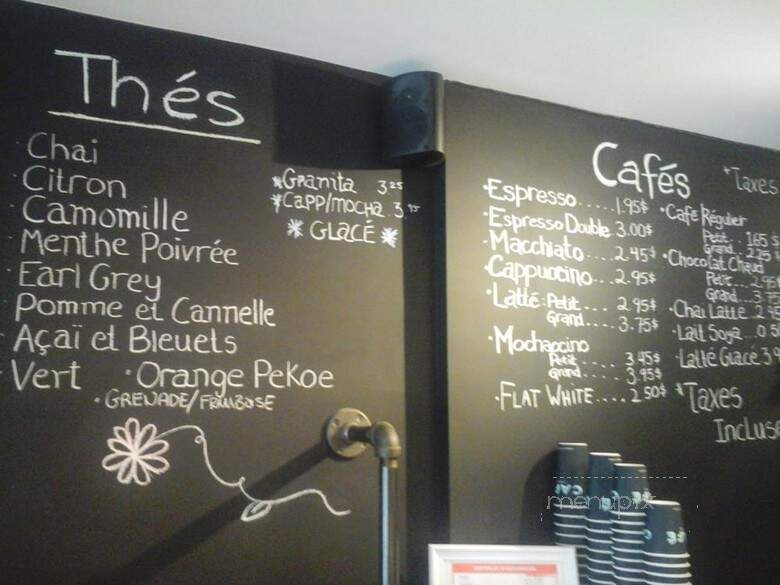 Thés
Chai
Citron
Camomille
Menthe Poivrée
Earl Grey
Pomme et Cannelle
Açaï et Bleuets
Vert · Orange Pekoe
· GRENADE/FRAMBOISE
*Granita 3.25
*CAPP/MOCHA 3.75
* GLACÉ *
Cafés
*Taxes
·Espresso.....1.95$
·Espresso Double 3.00$
·Macchiato....2.45$
·Cappuccino...2.95$
·Latté: Petit.... 2.95$
Grand.... 3.75$
·Mochaccino
Petit..... 3.45$
Grand.... 3.95$
·FLAT WHITE.... 2.50$
·Café Régulier
Petit... 1.65
Grand... 2.25
·Chocolat Chaud
Petit... 2.95
Grand...
·Chai Latte 2.95
·Lait Soya...
·Latté Glacé
*Taxes
Incluse
menupix